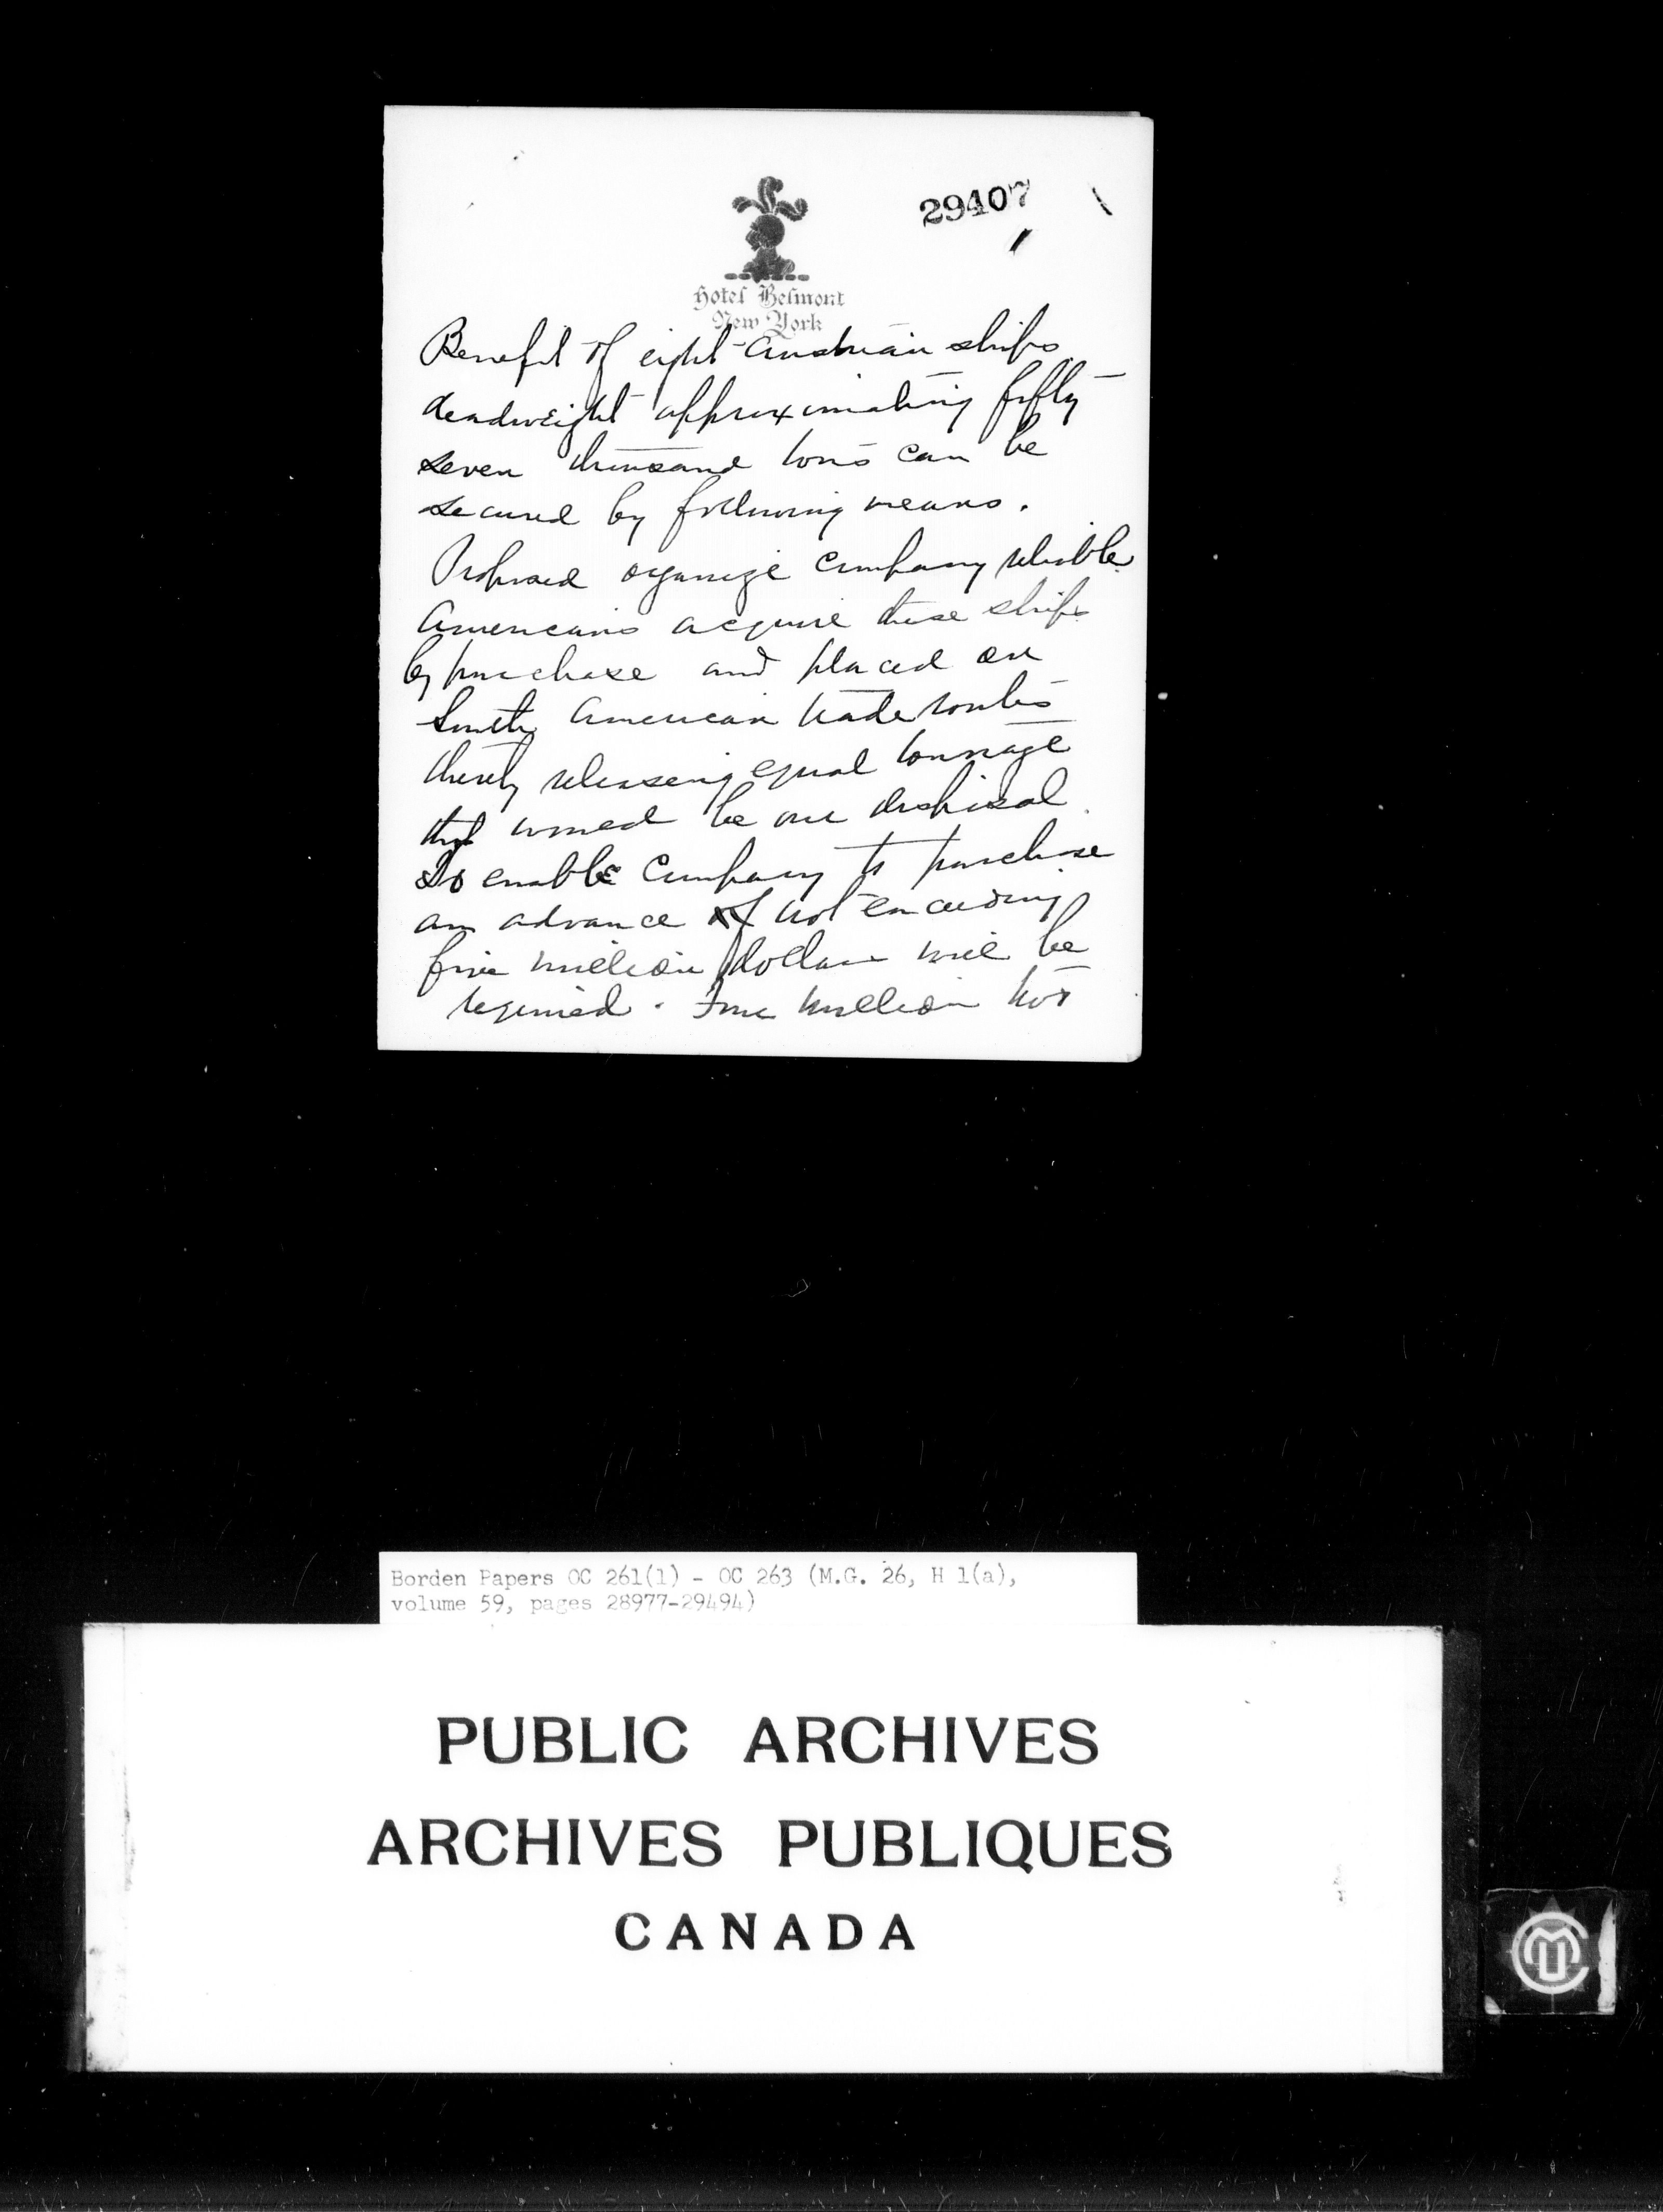 29407
Hotel Belmont
New York
Benefit of eight Austrian ships
deadweight approximating fifty
seven thousand tons can be
secured by following means.
Proposed organize company reliable
Americans acquire these ships
by purchase and placed on
South American trade routes
thereby releasing equal tonnage
that would be our disposal.
To enable Company to purchase
an advance of not exceeding
five million dollars will be
required. Four million not
Borden Papers OC 261(1) - OC 263 (M.G. 26, H 1(a),
volume 59, pages 28977-29494)
PUBLIC ARCHIVES
ARCHIVES PUBLIQUES
CANADA